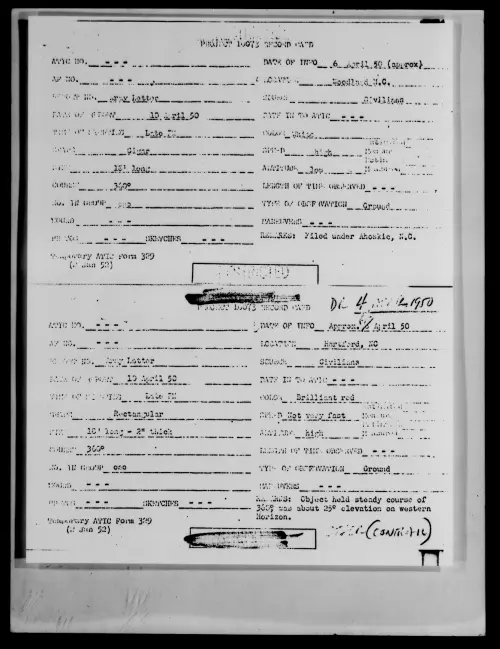 PROJECT 10073 RECORD CARD
ATIC NO. - - - DATE OF INFO 6 April 50 (approx)
AF NO. - - - LOCATION Woodland N.C.
REPORT NO. Army Letter SOURCE Civilians
DATE OF REPORT 10 April 50 DATE IN TO ATIC - - -
TIME OF SIGHTING Late PM COLOR White
SHAPE Cigar SPEED high
SIZE 15' long ALTITUDE low
COURSE 360° LENGTH OF TIME OBSERVED - - -
NO. IN GROUP one TYPE OF OBSERVATION Ground
SOUND - - - MANEUVERS - - -
PHOTOS - - - SKETCHES - - - REMARKS: Filed under Ahoskie, N.C.
Temporary ATIC Form 329
(2 Jan 52)
PROJECT 10073 RECORD CARD
ATIC NO. - - - DATE OF INFO Approx. April 50
AF NO. - - - LOCATION Hertford, NC
REPORT NO. Army Letter SOURCE Civilians
DATE OF REPORT 10 April 50 DATE IN TO ATIC - - -
TIME OF SIGHTING Late PM COLOR Brilliant red
SHAPE Rectangular SPEED Not very fast
SIZE 18' long - 2" thick ALTITUDE high
COURSE 360° LENGTH OF TIME OBSERVED - - -
NO. IN GROUP one TYPE OF OBSERVATION Ground
SOUND - - - MANEUVERS - - -
PHOTOS - - - SKETCHES - - - REMARKS: Object held steady course of
360° was about 25° elevation on western
Horizon.
Temporary ATIC Form 329
(2 Jan 52)